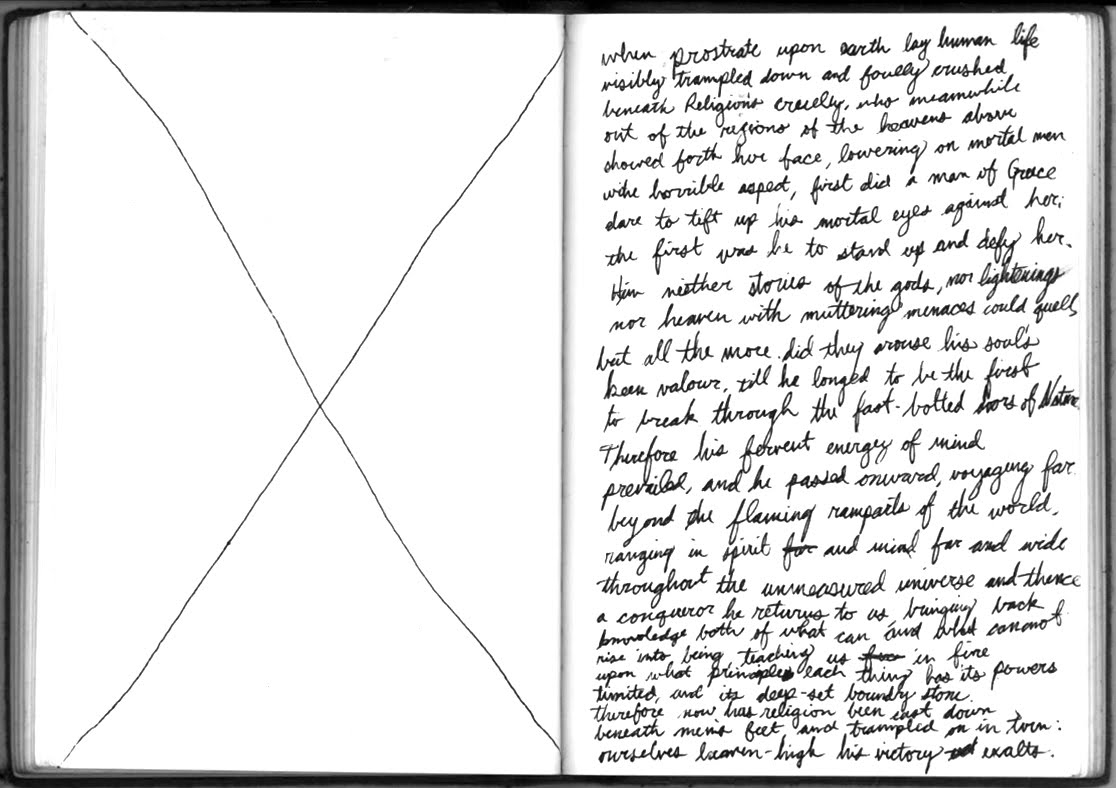 when prostrate upon earth lay human life
visibly trampled down and foully crushed
beneath Religion's cruelty, who meanwhile
out of the regions of the heavens above
showed forth her face, lowering on mortal men
with horrible aspect, first did a man of Greece
dare to lift up his mortal eyes against her;
the first was he to stand up and defy her.
Him neither stories of the gods, nor lightenings
nor heaven with muttering menaces could quell,
but all the more did they arouse his soul's
keen valour, till he longed to be the first
to break through the fast-bolted doors of Nature.
Therefore his fervent energy of mind
prevailed, and he passed onward, voyaging far
beyond the flaming ramparts of the world,
ranging in spirit far and mind far and wide
throughout the unmeasured universe and thence
a conqueror he returns to us, bringing back
knowledge both of what can and what cannot
rise into being teaching us in fine
upon what principles each thing has its powers
limited, and its deep-set boundry stone.
therefore now has religion been cast down
beneath men's feet, and trampled on in turn:
ourselves heaven-high his victory exalts.